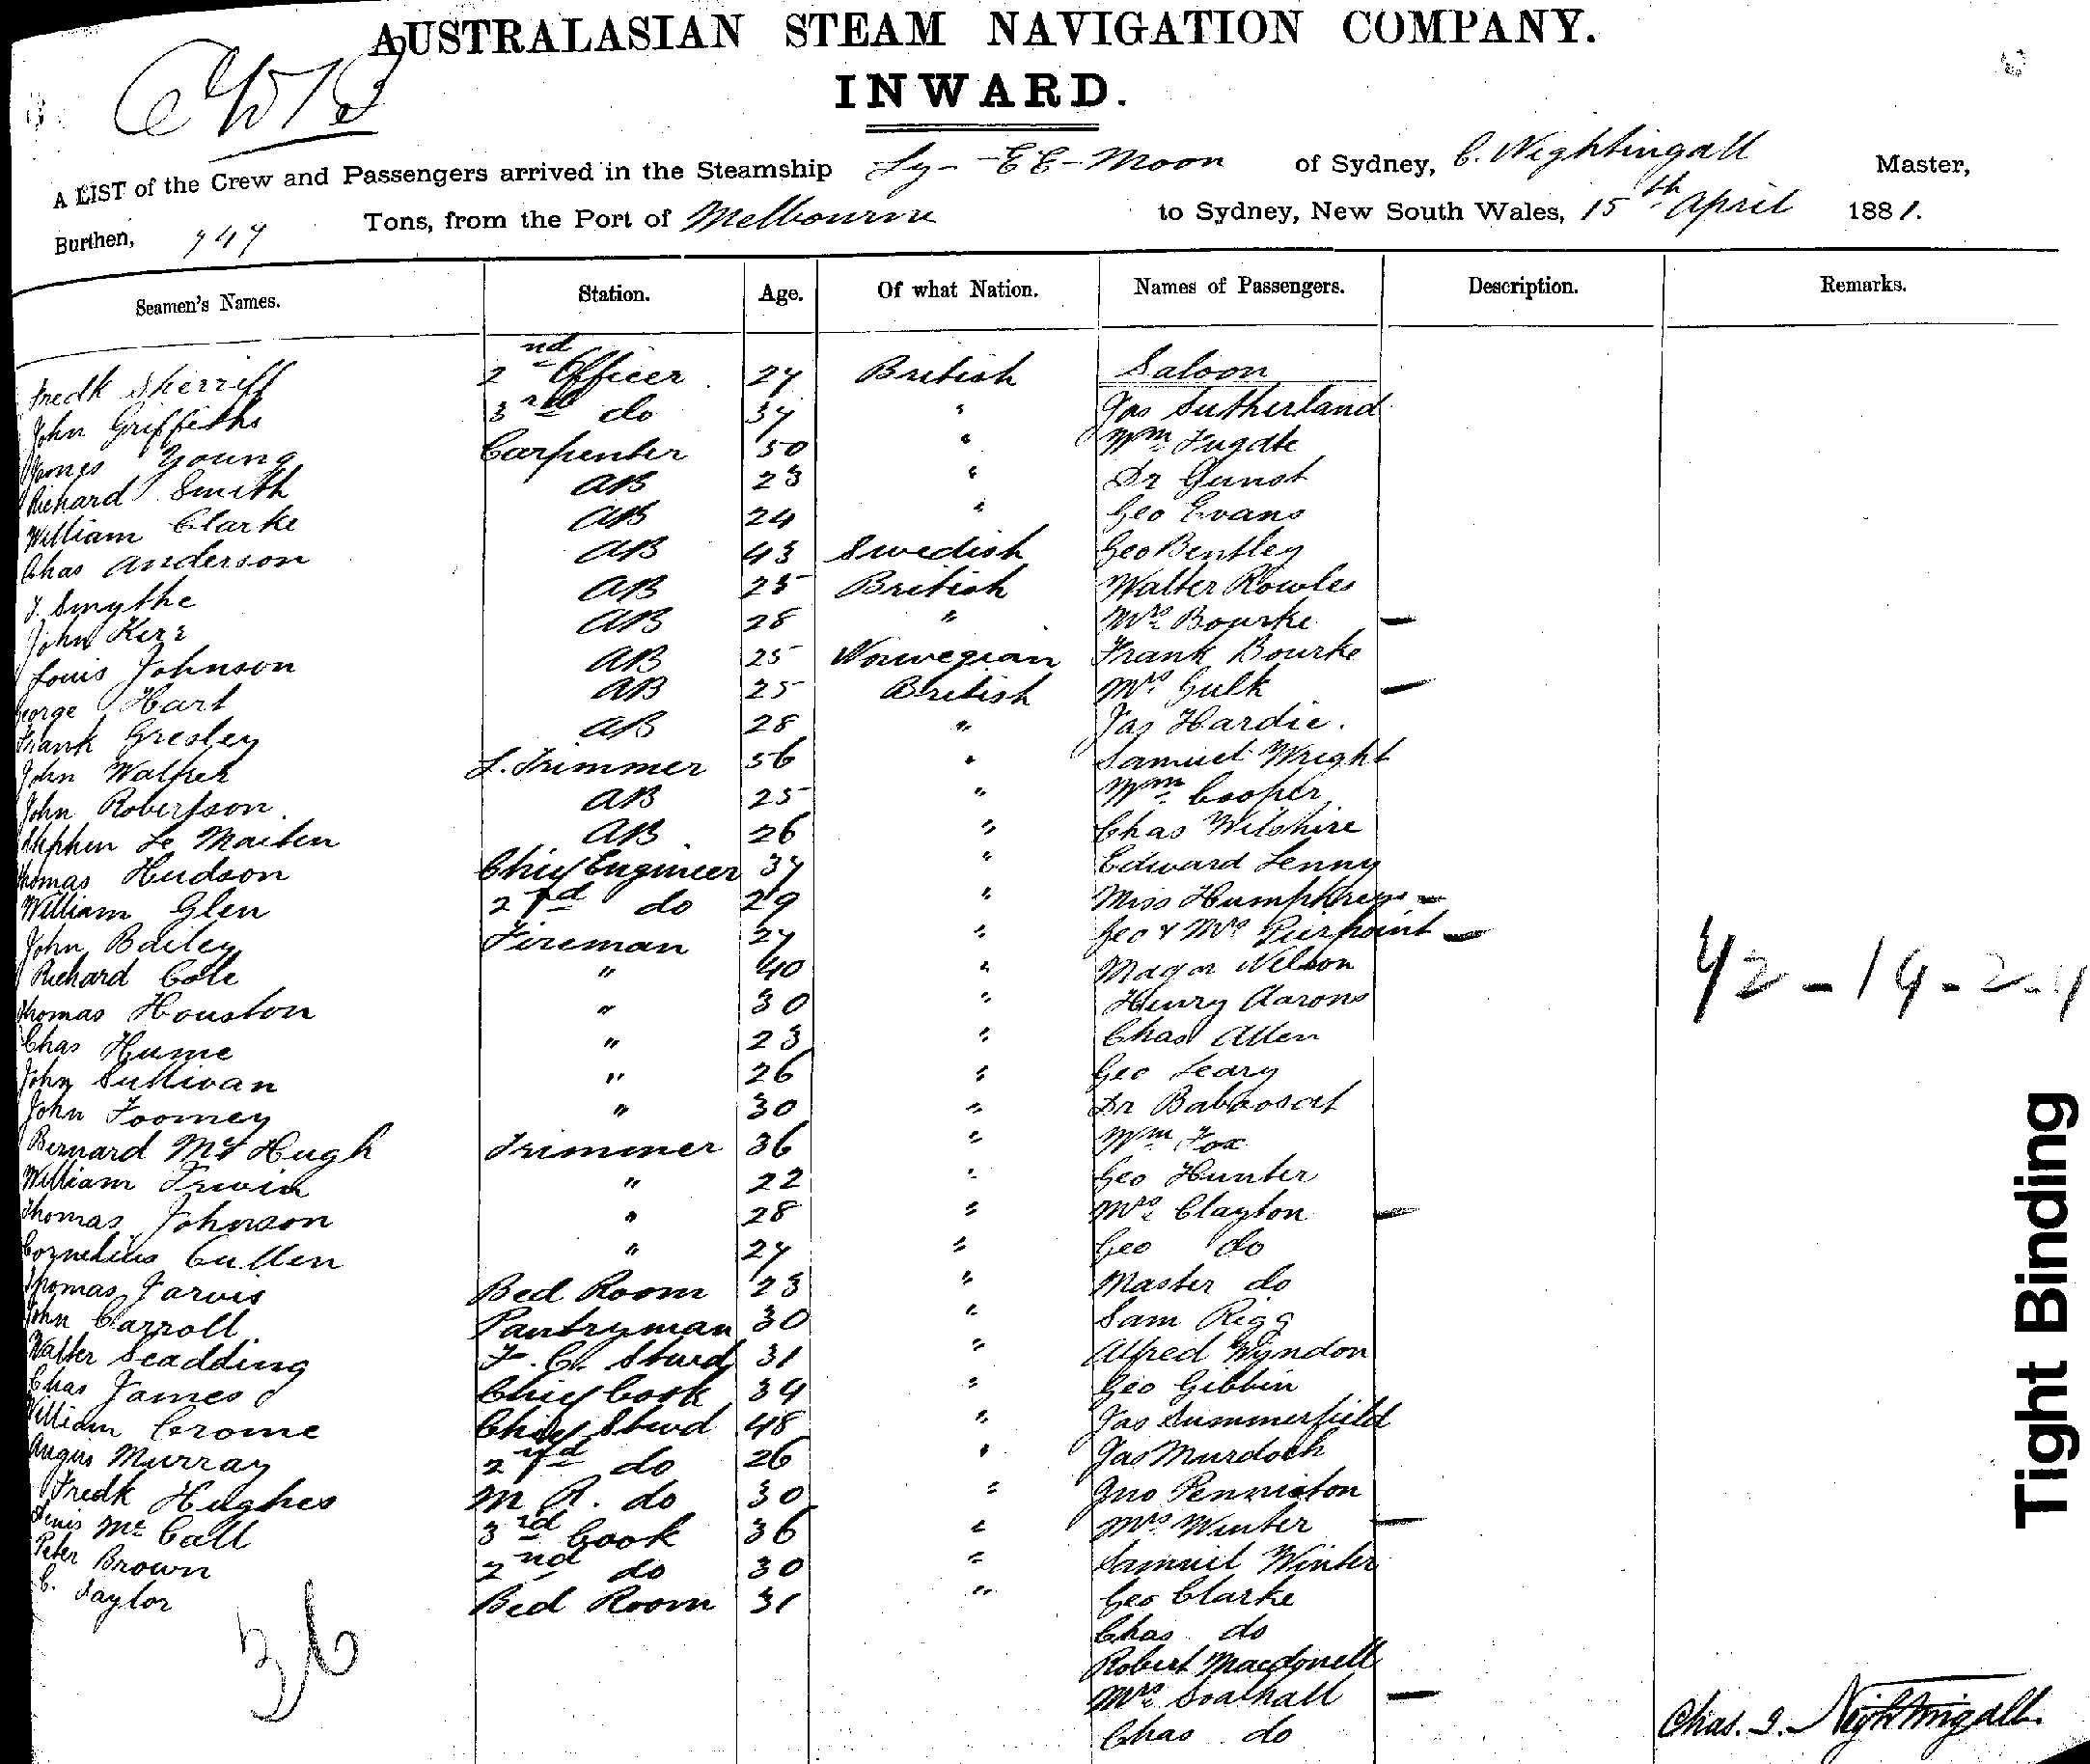 AUSTRALASIAN STEAM NAVIGATION COMPANY.
INWARD.
A LIST of the Crew and Passengers arrived in the Steamship Ly-EE-Moon of Sydney, C. Nightingall Master,
Burthen, Tons, from the Port of Melbourne to Sydney, New South Wales, 15th April 1881.
Seamen's Names. Station. Age. Of what Nation. Names of Passengers. Description. Remarks.
Fredk Sherriff 2nd Officer 27 British Saloon
John Griffiths 3rd do 37 " Jas Sutherland
James Young Carpenter 50 " Wm Fugate
Richard Smith AB 23 " Dr Gunst
William Clarke AB 24 " Geo Evans
Chas Anderson AB 43 Swedish Geo Bentley
J. Smythe AB 25 British Walter Rowles
John Kerr AB 28 " Mrs Bourke
Louis Johnson AB 25 Norwegian Frank Bourke
George Hart AB 25 British Mrs Gulk
Frank Gresley AB 28 " Jas Hardie.
John Walker L. Trimmer 56 " Samuel Wright
John Robertson AB 25 " Wm Cooper
Stephen Le Maiten AB 26 " Chas Wilshire
Thomas Hudson Chief Engineer 37 " Edward Lenny
William Glen 2nd do 29 " Miss Humphreys
John Bailey Fireman 27 " Geo & Mrs Pierpoint
Richard Cole " 40 " Magor Nelson
Thomas Houston " 30 " Henry Aarons
Chas Hume " 23 " Chas Allen
John Sullivan " 26 " Geo Leary
John Toomey " 30 " Dr
Bernard Mc Hugh Trimmer 36 " Wm Fox
William Irwin " 22 " Geo Hunter
Thomas Johnson " 28 " Mrs Clayton
Cornelius Cullen " 27 " Geo do
Thomas Jarvis Bed Room 23 " Master do
John Carroll Pantryman 30 " Sam Rigg
Walter Scadding F. C. Stwd 31 " Alfred Wyndon
Chas James Chief Cook 39 " Geo Gibbin
William Crome Chief Stwd 48 " Jas Summerfield
Angus Murray 2nd do 26 " Jas Murdoch
Fredk Hughes M R. do 30 " Jno Penniston
Denis Mc Call 3rd Cook 36 " Mrs Winter
Peter Brown 2nd do 30 " Samuel Winter
C. Taylor Bed Room 31 " Geo Clarke
Chas do
Robert Macdonell
Mrs Soathall
Chas do
36
42-19-2-
Chas. Nightingall
Tight Binding